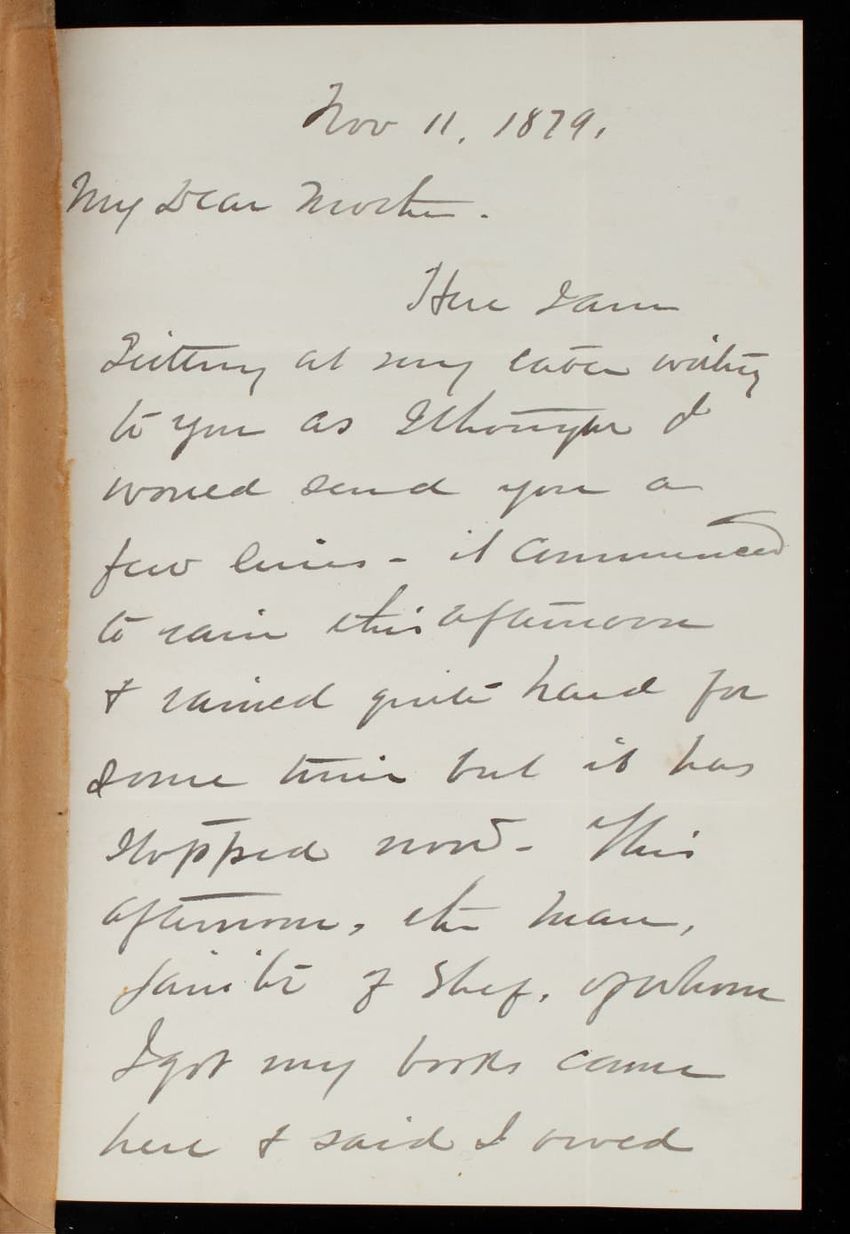 Nov 11, 1879.
My Dear Mother.
Here I am
Sitting at my table writing
to you as I thought I
would send you a
few lines - it commenced
to rain this afternoon
& rained quite hard for
some time but it has
stopped now - This
afternoon, the man,
Janitor of Shef. of whom
I got my books came
here & said I owed